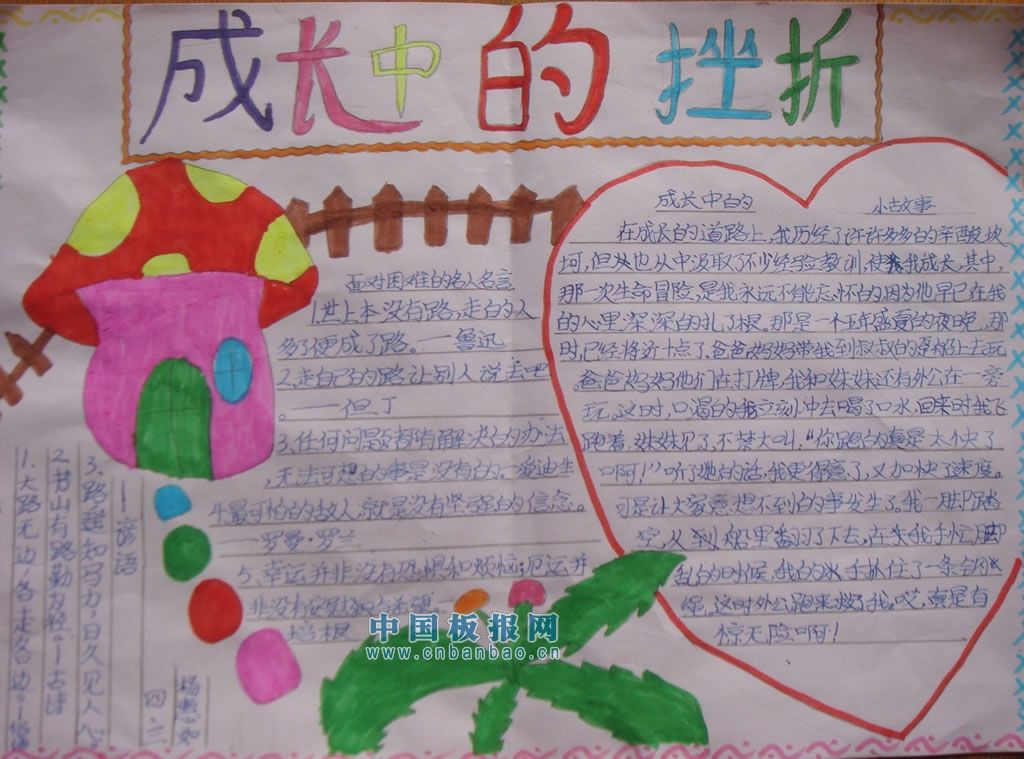 成长中的挫折
面对困难的名人名言
1.世上本没有路,走的人
多了便成了路。——鲁迅
2.走自己的路让别人说去吧
。——但丁
3.任何问题都有解决的办法
,无法可想的事是没有的。—爱迪生
4.最可怕的敌人,就是没有坚强的信念。
——罗曼·罗兰
5、幸运并非没有恐惧和烦恼;厄运并
非没有
培根
成长中的 小故事
在成长的道路上,我历经了许许多多的辛酸坎
坷,但从也从中汲取了不少经验教训,使我成长,其中,
那一次生命冒险,是我永远不能忘怀的因为他早已在我
的心里深深的扎了根。那是一个五年盛夏的夜晚,那
时,已经将近十点了.爸爸妈妈带我到叔叔的 上去玩
。爸爸妈妈他们在打牌,我和妹妹还有外公在一旁
玩。这时,口渴的我立刻冲去喝了口水,回来时我飞
跑着,妹妹见了,不禁大叫:“你跑的真是太快了
啊!”听了她的话,我更得意了,又加快了速度。
可是让大家意想不到的事发生了,我一脚踏
空,从 船里翻了下去,在我手忙脚
乱的时候,我的 手抓住了一条
绳,这时外公跑来救了我。哎,真是有
惊无险啊!
3.路遥知马力,日久见人心
——谚语
2.书山有路勤为径。—古诗
1.大路无边,各走各边。
四.二
中国板报网
www.cnbanbao.cn